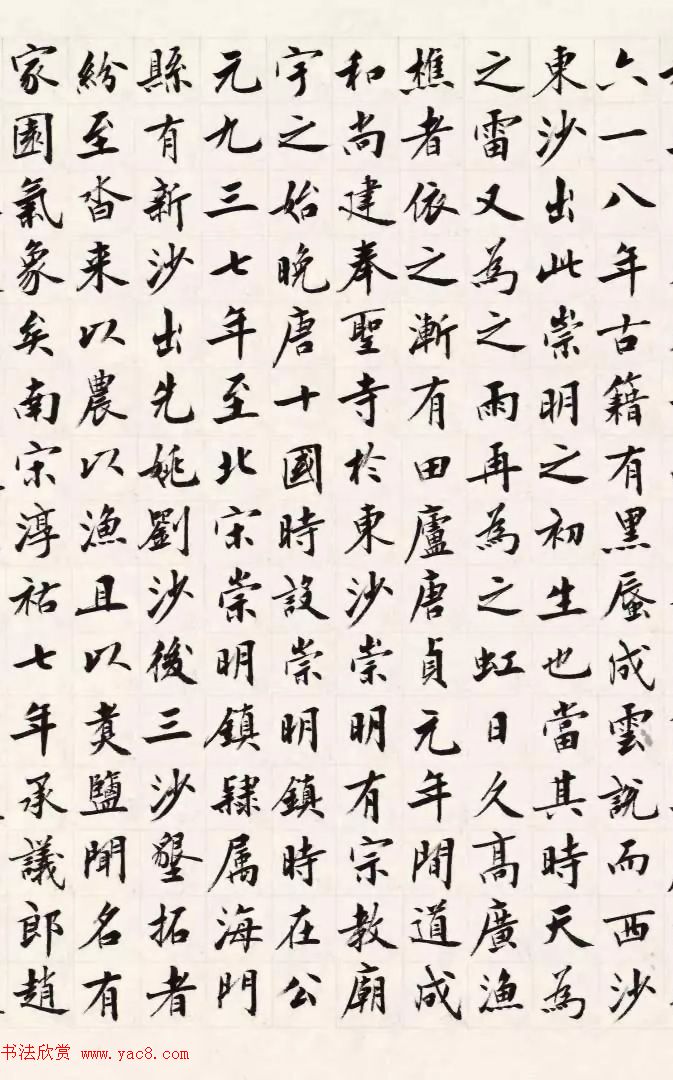 六一八年古籍有黑蜃成雲說而西沙
東沙出此崇明之初生也當其時天為
之雷又為之雨再為之虹日久高廣漁
樵者依之漸有田廬唐貞元年間道成
和尚建奉聖寺於東沙崇明有宗教廟
宇之始晚唐十國時設崇明鎮時在公
元九三七年至北宋崇明鎮隸属海門
縣有新沙出先姚劉沙後三沙墾拓者
紛至沓来以農以漁且以煑鹽聞名有
家園氣象矣南宋淳祐七年承議郎趙
书法欣赏 www.yac8.com